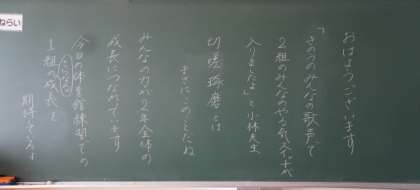 ねらい
おはようございます
「きのうのみんなの歌声で
2組のみんなのやる気スイッチ
入りましたよ」と小林先生
切磋琢磨とは
まさにこのことだね
みんなの力が2年全体の
成長につながっています
今日の体育館練習での
1組のさらなる成長を
期待してるよ